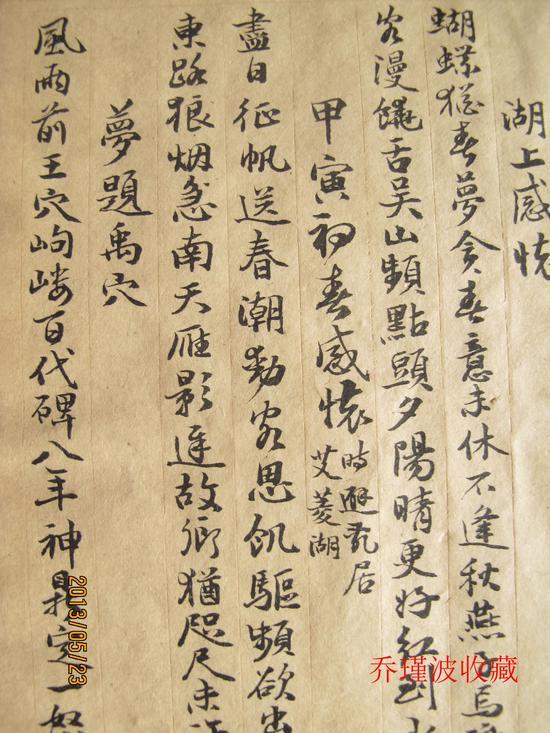 湖上感懷
蝴蝶猶春夢貪春意未休不逢秋燕子烏
客漫饒舌吳山頻點頭夕陽晴更好紅到
甲寅初春感懷時避亂居
艾菱湖
盡日征帆送春潮動客思飢驅頻欲出
東路狼烟急南天雁影遲故鄉猶咫尺未
夢題禹穴
風雨前王穴岣嶁百代碑八年神鼎定一怒
2013/05/23
乔瑾波收藏